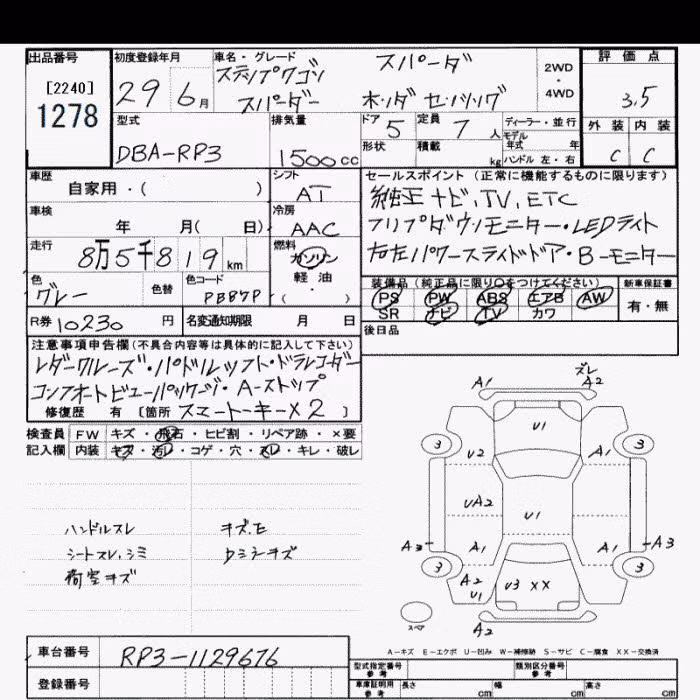 出品番号 初度登録年月 車名・グレード 評価点
[2240] 1278
29年 6月 ステップワゴン スパーダ
スパーダー ホンダ センシング
2WD・4WD
3.5
外装 内装
C C
型式 排気量 ドア 定員 ディーラー・並行
DBA-RP3 1500cc 5 7人 モデル年式 年
形状 積載 kg ハンドル 左・右
車歴 自家用・( ) シフト AT
セールスポイント (正常に機能するものに限ります)
純正ナビ、TV、ETC
フリップダウンモニター・LEDライト
右左パワースライドドア・Bーモニター
車検 年 月( 日) 冷房 AAC
走行 8万5千819km 燃料 ガソリン
軽油
・( )
色 グレー 色替 色コード PB87P
装備品 (純正品に限り○をつけてください) 新車保証書
PS PW ABS エアB AW 有・無
SR ナビ TV カワ
R券 10230円 名変通知期限 月 日
後日品
注意事項申告欄 (不具合内容等は具体的に記入して下さい)
レダークルーズ・パドルシフト・ドラレコーダー
コンフォートビューパッケージ・Aーストップ
修復歴 有 [箇所 スマートーキー×2 ]
検査員 FW キズ・飛石・ヒビ割・リペア跡・×要
記入欄 内装 キズ・汚レ・コゲ・穴・スレ・キレ・破レ
ハンドルスレ キズ、E
シートスレ、シミ ウミラーキズ
荷室キズ
A1 ズレ A2
U1
3 3
U2 A1
UA2 U1
A3 A1 A1 A3
3 3
A2 U1 U3 XX
スペア A2
A-キズ E-エクボ U-凹み W-補修跡 S-サビ C-腐食 XX-交換済
車台番号 RP3-1129676
登録番号
型式指定番号 参考 類別区分番号 参考
車庫証明用 参考 長さ cm 幅 cm 高さ cm